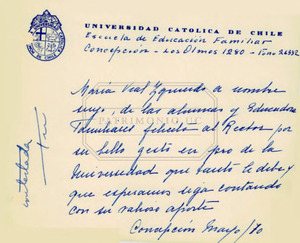 UNIVERSIDAD CATOLICA DE CHILE
Escuela de Educación Familiar
Concepción - Los Olmos 1280 - Fono 26332
María Vial Izquierdo a nombre
suyo, de las alumnas y Educadoras
Familiares felicita al Rector por
su bello gesto en pro de la
Universidad que tanto le debe y
que esperamos siga contando
con su valioso aporte
Concepción Mayo/70
contestada
PATRIMONIO UC